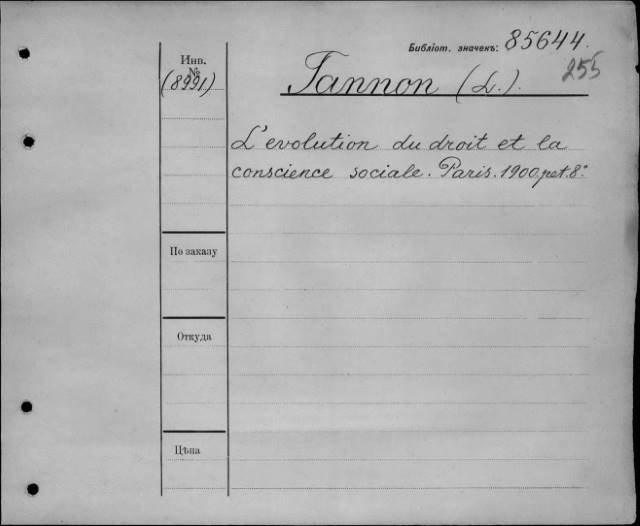 Библіот. значекъ: 85644.
255
Инв.
№
(8991)
Tannon (L.).
L'evolution du droit et la
conscience sociale. Paris. 1900. pet. 8°
По заказу
Откуда
Цѣна